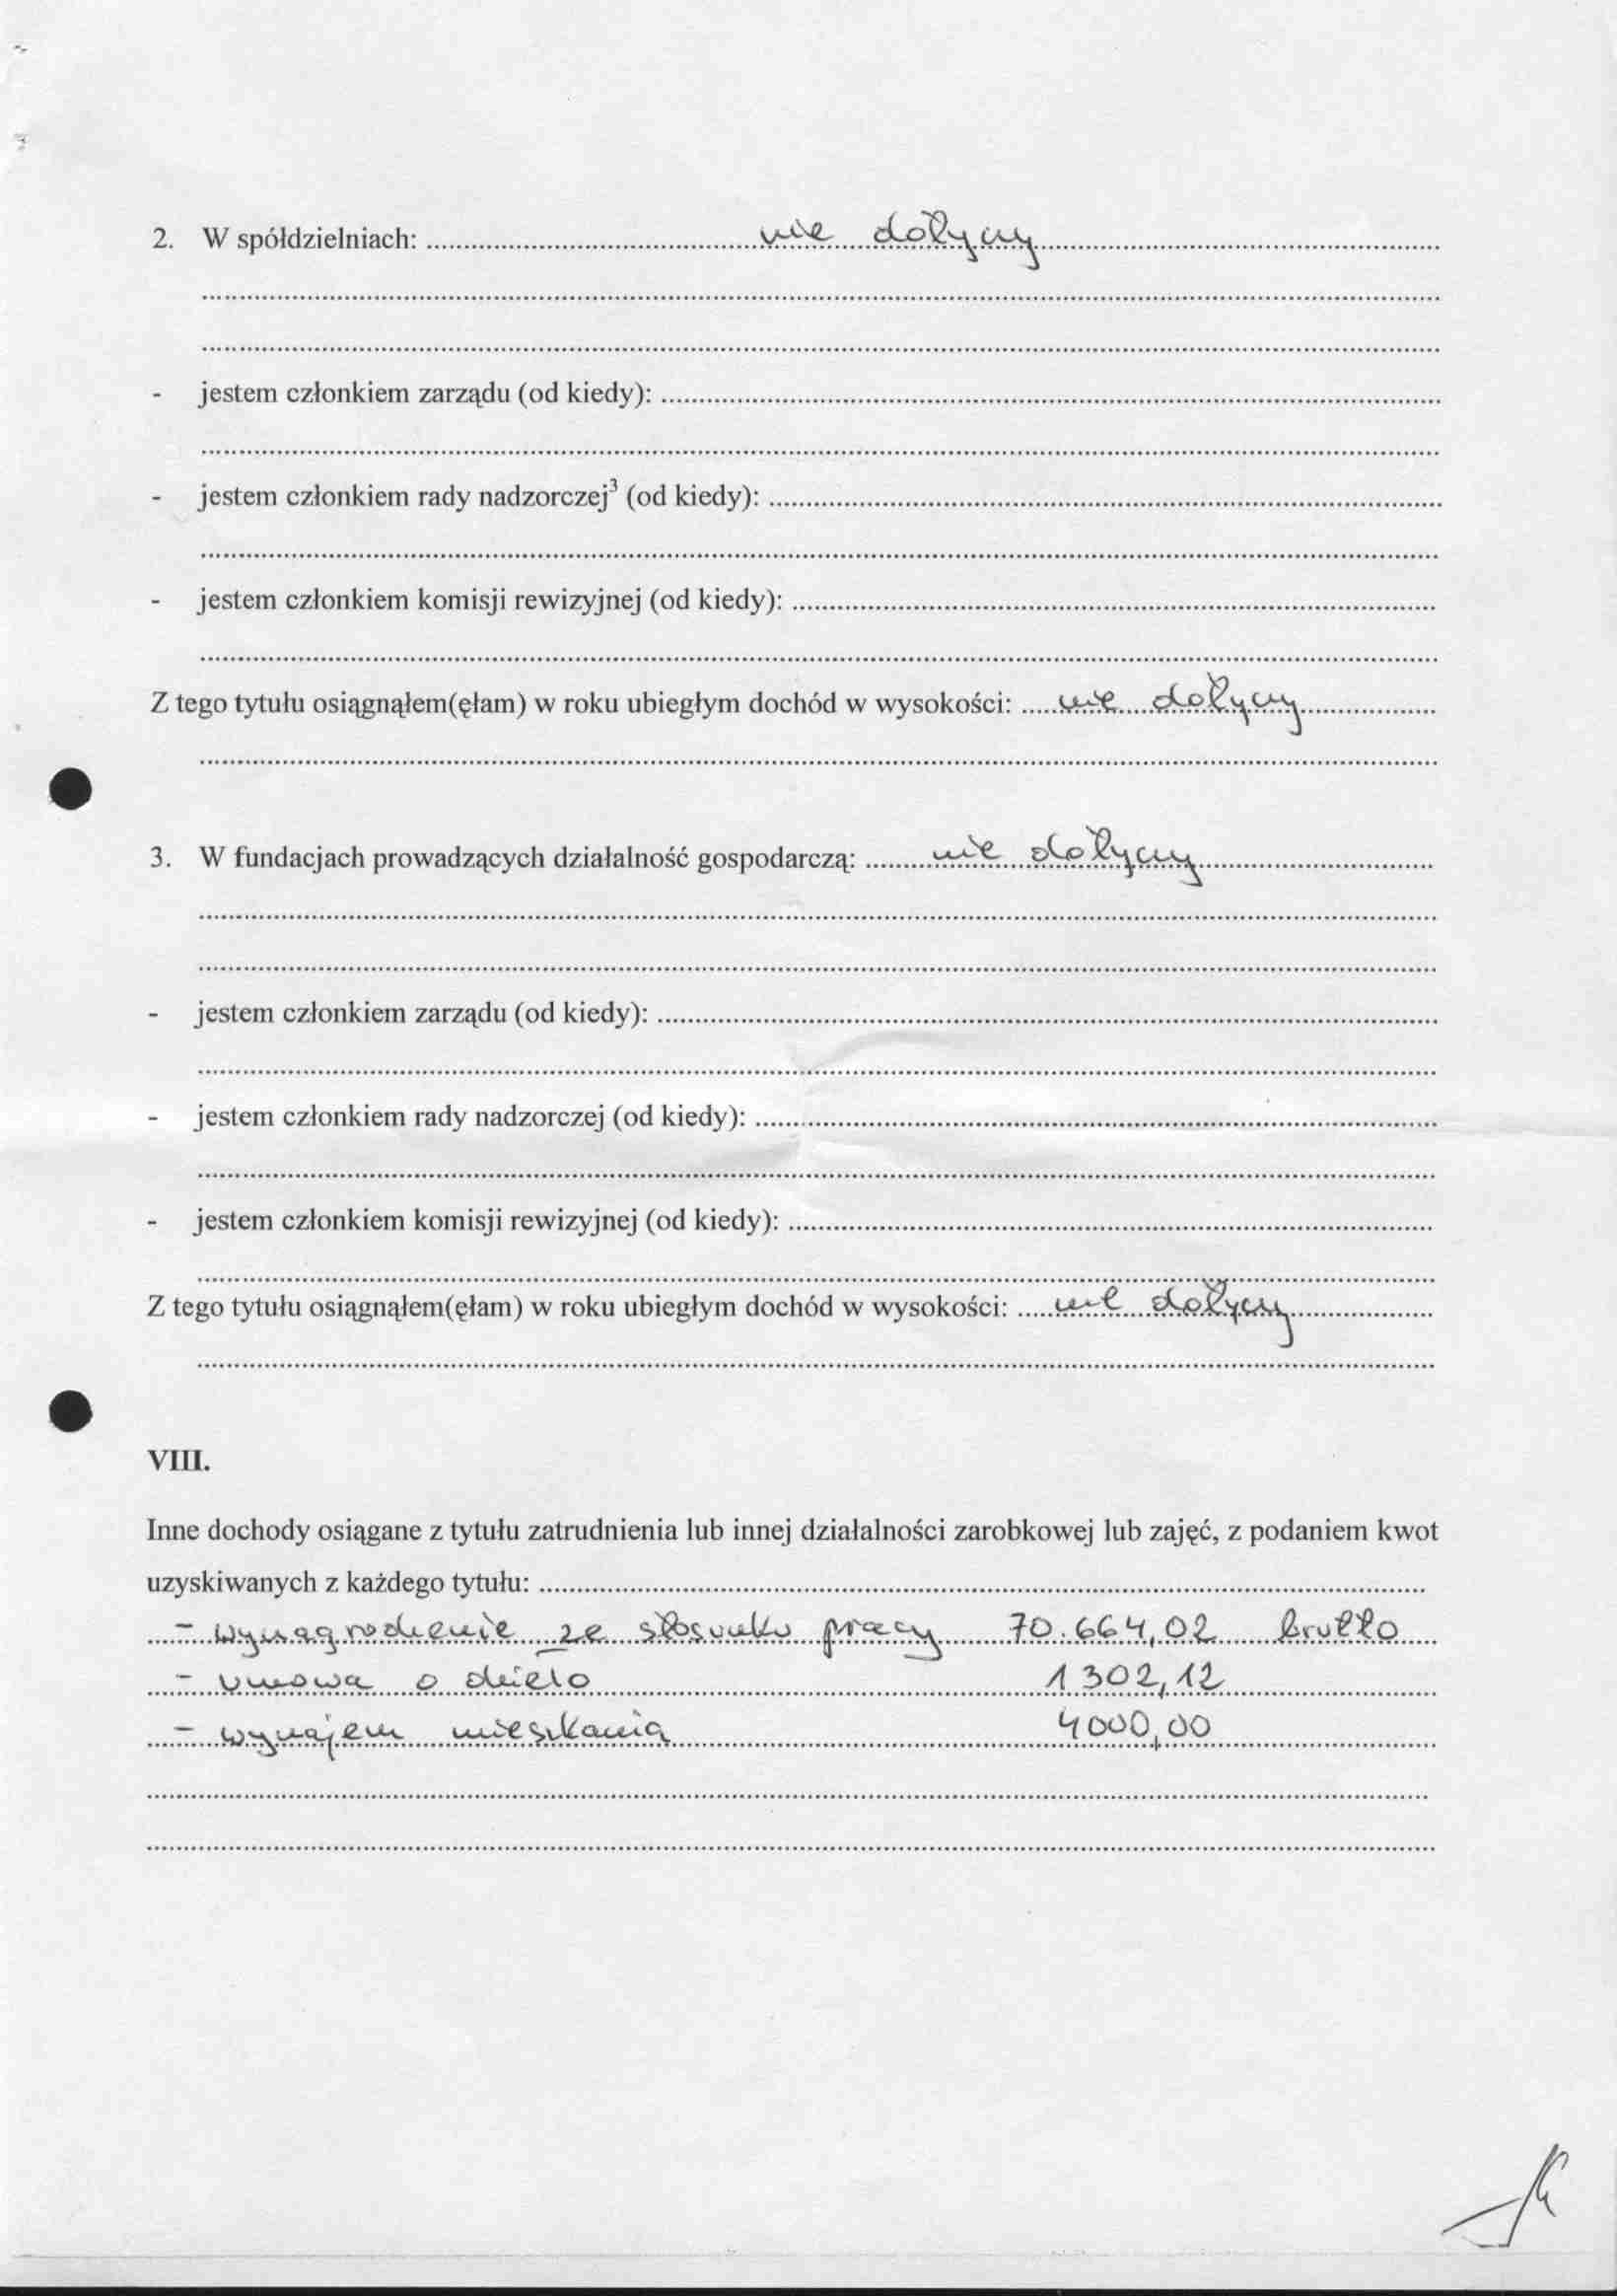 2. W spółdzielniach: nie dotyczy
- jestem członkiem zarządu (od kiedy):
- jestem członkiem rady nadzorczej³ (od kiedy):
- jestem członkiem komisji rewizyjnej (od kiedy):
Z tego tytułu osiągnąłem(ęłam) w roku ubiegłym dochód w wysokości: nie dotyczy
3. W fundacjach prowadzących działalność gospodarczą: nie dotyczy
- jestem członkiem zarządu (od kiedy):
- jestem członkiem rady nadzorczej (od kiedy):
- jestem członkiem komisji rewizyjnej (od kiedy):
Z tego tytułu osiągnąłem(ęłam) w roku ubiegłym dochód w wysokości: nie dotyczy
VIII.
Inne dochody osiągane z tytułu zatrudnienia lub innej działalności zarobkowej lub zajęć, z podaniem kwot
uzyskiwanych z każdego tytułu:
- wynagrodzenie ze stosunku pracy 70.664,02 brutto
- umowa o dzieło 1302,12
- wynajem mieszkania 4000,00